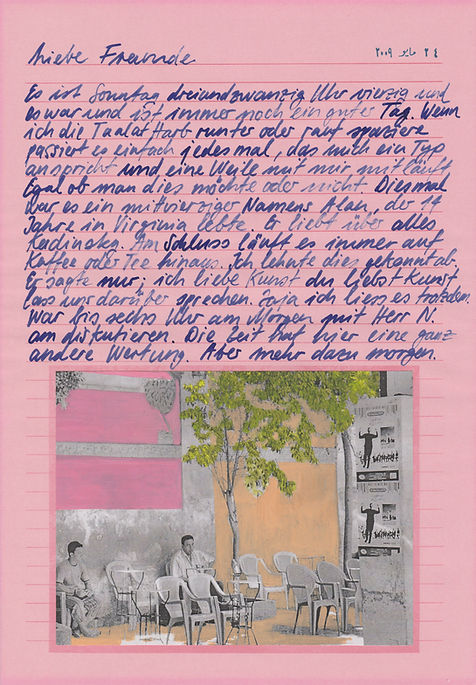 Liebe Freunde
٢٤ مايو ٢٠٠٩
Es ist Sonntag dreiundzwanzig Uhr vierzig und
es war und ist immer noch ein guter Tag. Wenn
ich die Taalat Harb runter oder rauf spaziere
passiert es einfach jedes mal, das mich ein Typ
anspricht und eine Weile mit mir mit läuft
Egal ob man dies möchte oder nicht. Diesmal
war es ein mitvierziger Namens Alan, der 14
Jahre in Virginia lebte. Er liebt über alles
Kadinsky. Am Schluss läuft es immer auf
Kaffee oder Tee hinaus. Ich lehnte dies gekonnt ab.
Er sagte nur; ich liebe Kunst du liebst Kunst
lass uns darüber sprechen. Jaja ich liess es trotzdem.
War bis sechs Uhr am Morgen mit Herr N.
am diskutieren. Die Zeit hat hier eine ganz
andere Wertung. Aber mehr dazu morgen.